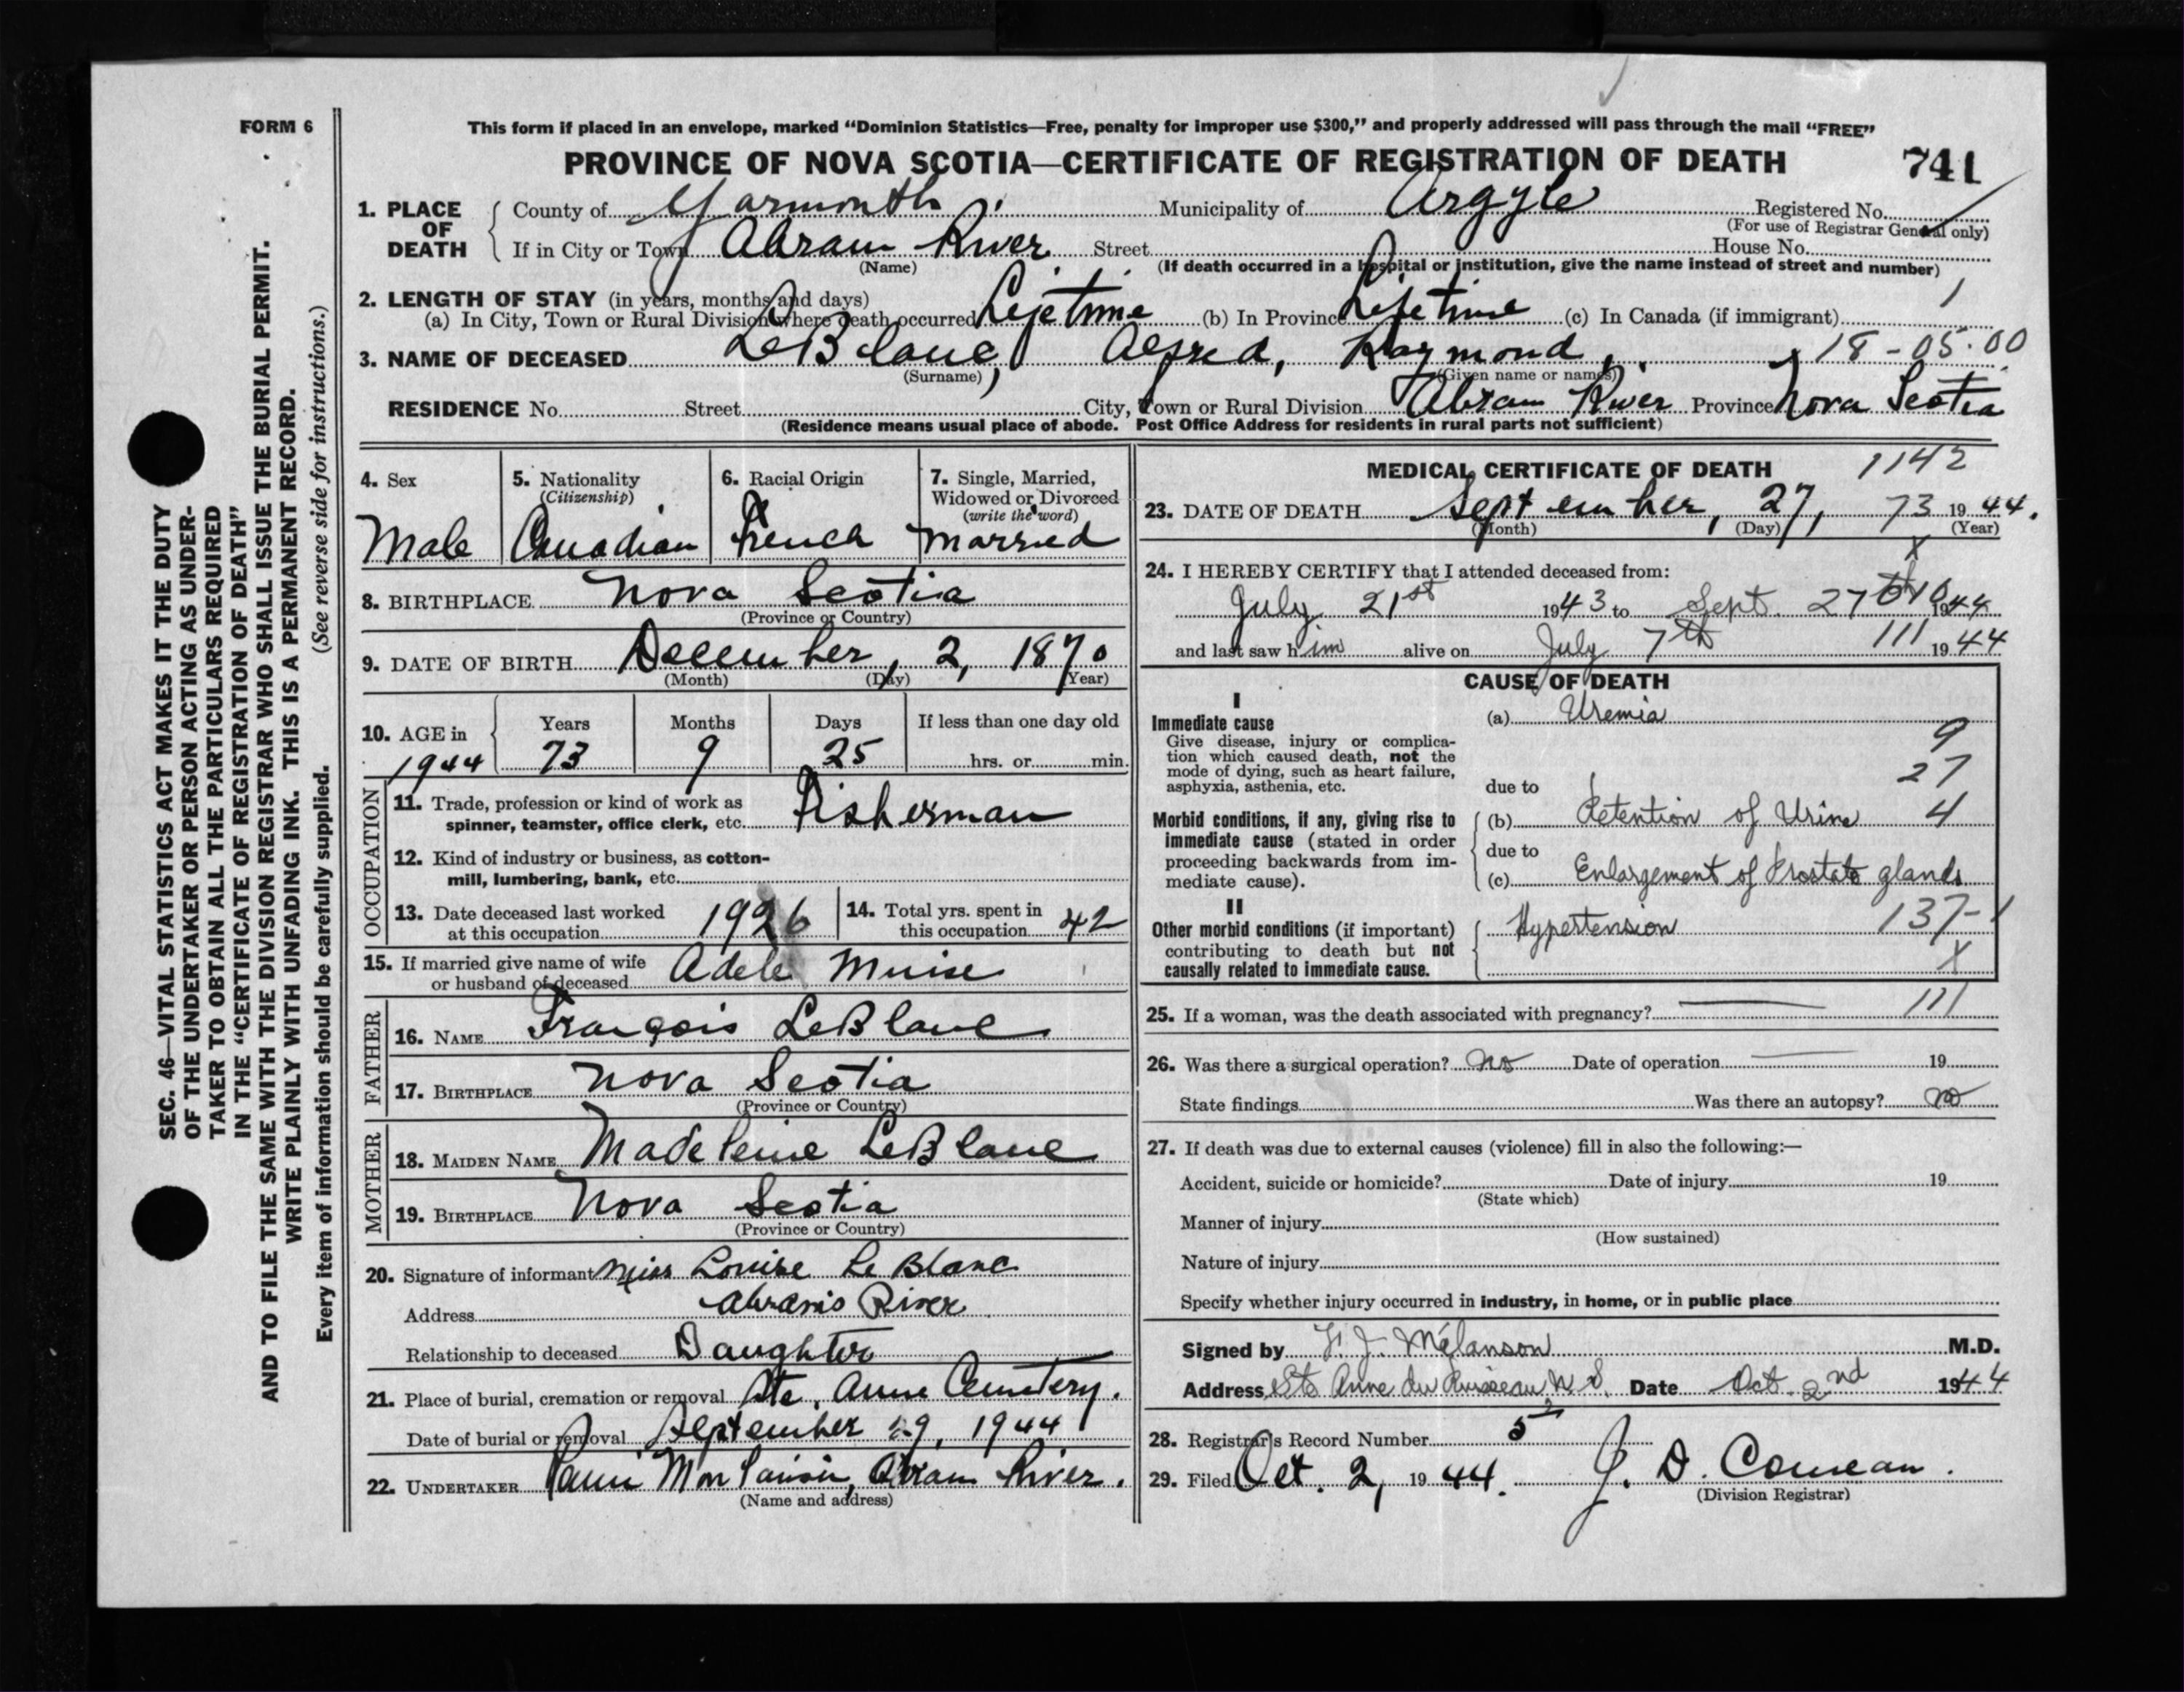 FORM 6
This form if placed in an envelope, marked “Dominion Statistics—Free, penalty for improper use $300,” and properly addressed will pass through the mail “FREE”
PROVINCE OF NOVA SCOTIA—CERTIFICATE OF REGISTRATION OF DEATH 741
1. PLACE OF DEATH
County of Yarmouth Municipality of Argyle Registered No.
(For use of Registrar General only)
If in City or Town Abram River Street House No.
(Name) (If death occurred in a hospital or institution, give the name instead of street and number)
2. LENGTH OF STAY (in years, months and days) 1
(a) In City, Town or Rural Division where death occurred Lifetime (b) In Province Lifetime (c) In Canada (if immigrant)
3. NAME OF DECEASED LeBlanc, Alfred, Raymond, 18-05-00
(Surname) (Given name or names)
RESIDENCE No. Street City, Town or Rural Division Abram River Province Nova Scotia
(Residence means usual place of abode. Post Office Address for residents in rural parts not sufficient)
SEC. 46—VITAL STATISTICS ACT MAKES IT THE DUTY
OF THE UNDERTAKER OR PERSON ACTING AS UNDER-
TAKER TO OBTAIN ALL THE PARTICULARS REQUIRED
IN THE “CERTIFICATE OF REGISTRATION OF DEATH”
AND TO FILE THE SAME WITH THE DIVISION REGISTRAR WHO SHALL ISSUE THE BURIAL PERMIT.
WRITE PLAINLY WITH UNFADING INK. THIS IS A PERMANENT RECORD.
Every item of information should be carefully supplied. (See reverse side for instructions.)
4. Sex 5. Nationality 6. Racial Origin 7. Single, Married,
(Citizenship) Widowed or Divorced
(write the word)
Male Canadian French Married
8. BIRTHPLACE Nova Scotia
(Province or Country)
9. DATE OF BIRTH December, 2, 1870
(Month) (Day) (Year)
10. AGE in Years Months Days If less than one day old
1944 73 9 25 hrs. or min.
OCCUPATION
11. Trade, profession or kind of work as
spinner, teamster, office clerk, etc. Fisherman
12. Kind of industry or business, as cotton-
mill, lumbering, bank, etc.
13. Date deceased last worked
at this occupation 1926
14. Total yrs. spent in
this occupation 42
15. If married give name of wife
or husband of deceased Adele Muise
FATHER
16. NAME François LeBlanc
17. BIRTHPLACE Nova Scotia
(Province or Country)
MOTHER
18. MAIDEN NAME Madeleine LeBlanc
19. BIRTHPLACE Nova Scotia
(Province or Country)
20. Signature of informant Miss Louise LeBlanc
Address Abrams River
Relationship to deceased Daughter
21. Place of burial, cremation or removal Ste. Anne Cemetery.
Date of burial or removal September 29, 1944
22. UNDERTAKER Abram River.
(Name and address)
MEDICAL CERTIFICATE OF DEATH 1142
23. DATE OF DEATH September, 27, 73 1944.
(Month) (Day) (Year)
X
24. I HEREBY CERTIFY that I attended deceased from:
July 21st 1943 to Sept. 27th 1944
and last saw him alive on July 7th 111 1944
CAUSE OF DEATH
I
Immediate cause (a) Uremia
Give disease, injury or complica-
tion which caused death, not the
mode of dying, such as heart failure,
asphyxia, asthenia, etc. due to
9
27
4
Morbid conditions, if any, giving rise to
immediate cause (stated in order
proceeding backwards from im-
mediate cause).
(b) Retention of Urine
due to
(c) Enlargement of Prostate glands
II
Other morbid conditions (if important)
contributing to death but not
causally related to immediate cause.
Hypertension 137-1
X
25. If a woman, was the death associated with pregnancy? 111
26. Was there a surgical operation? No Date of operation 19
State findings Was there an autopsy? no
27. If death was due to external causes (violence) fill in also the following:—
Accident, suicide or homicide? Date of injury 19
(State which)
Manner of injury
(How sustained)
Nature of injury
Specify whether injury occurred in industry, in home, or in public place
Signed by J. Melanson M.D.
Address Ste Anne du Ruisseau N.S. Date Oct. 2nd 1944
28. Registrar's Record Number 5
29. Filed Oct. 2, 1944. J. D. Comeau.
(Division Registrar)